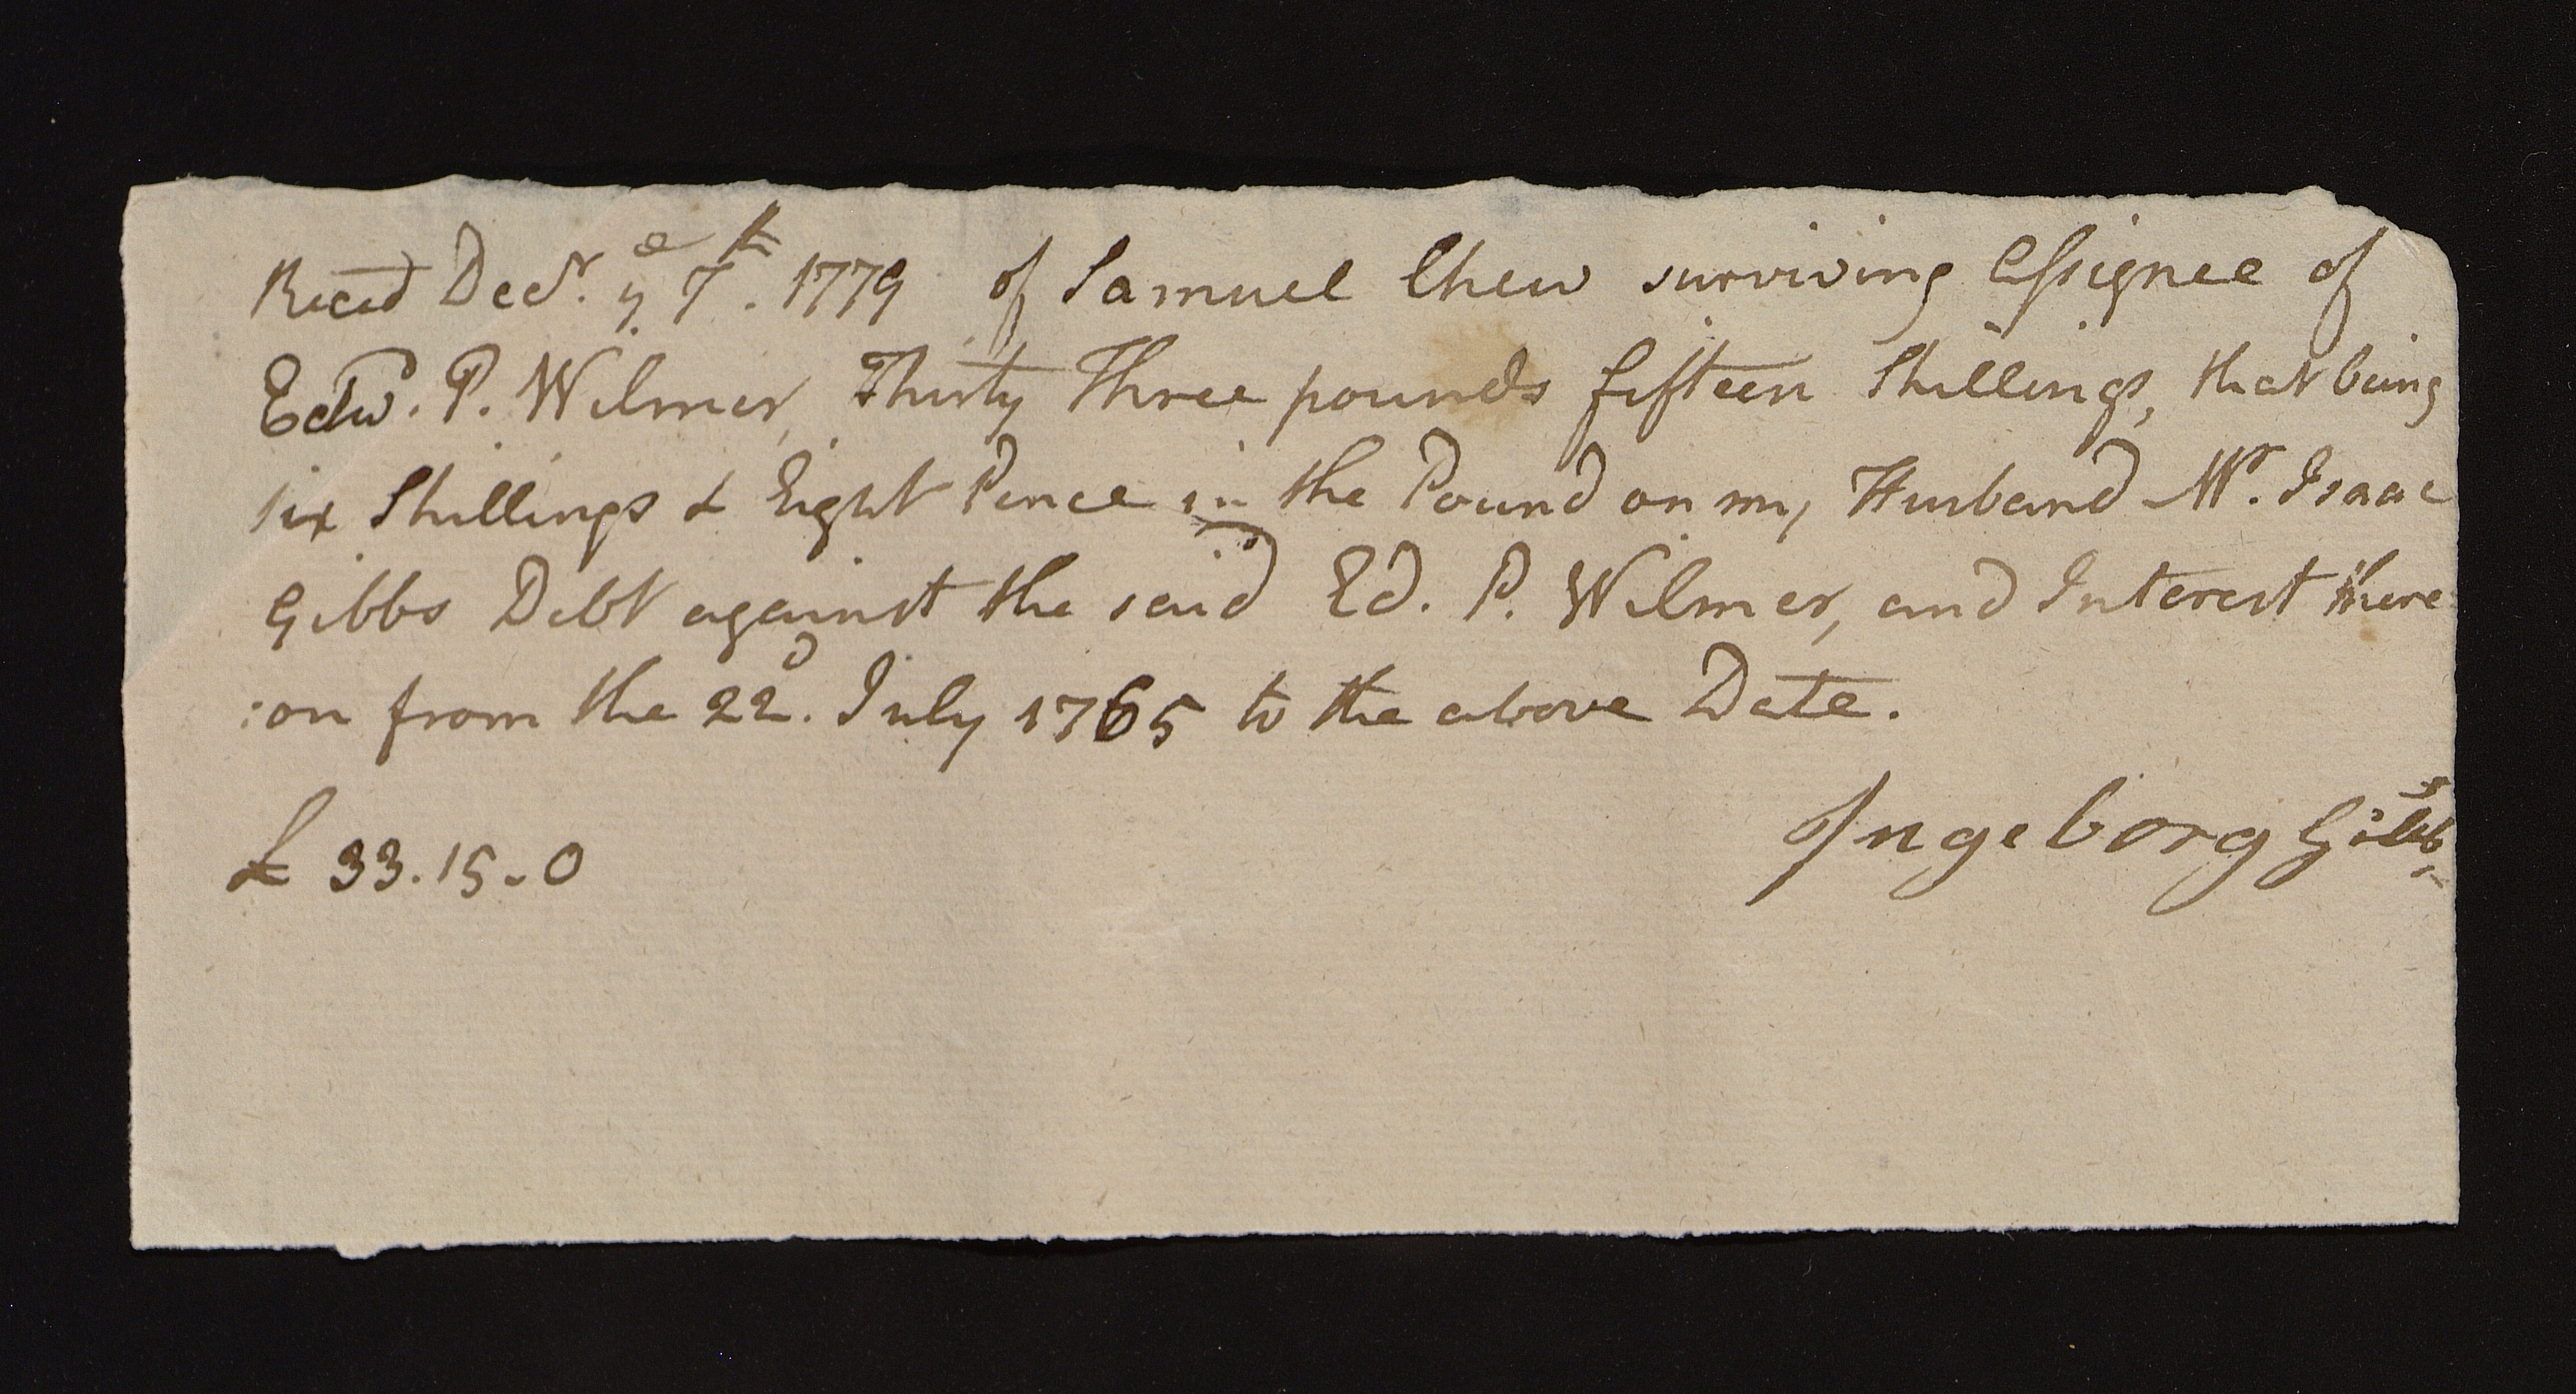 Recd Decr. ye 7th. 1779 of Samuel Chew surviving Assignee of
Edwd. P. Wilmer, Thirty Three pounds fifteen Shillings, that being
six Shillings & Eight Pence in the Pound on my Husband Mr. Isaac
Gibbs Debt against the said Ed. P. Wilmer, and Interest there
:on from the 22d. July 1765 to the above Date.
£ 33.15-0
Ingeborg Gibbs